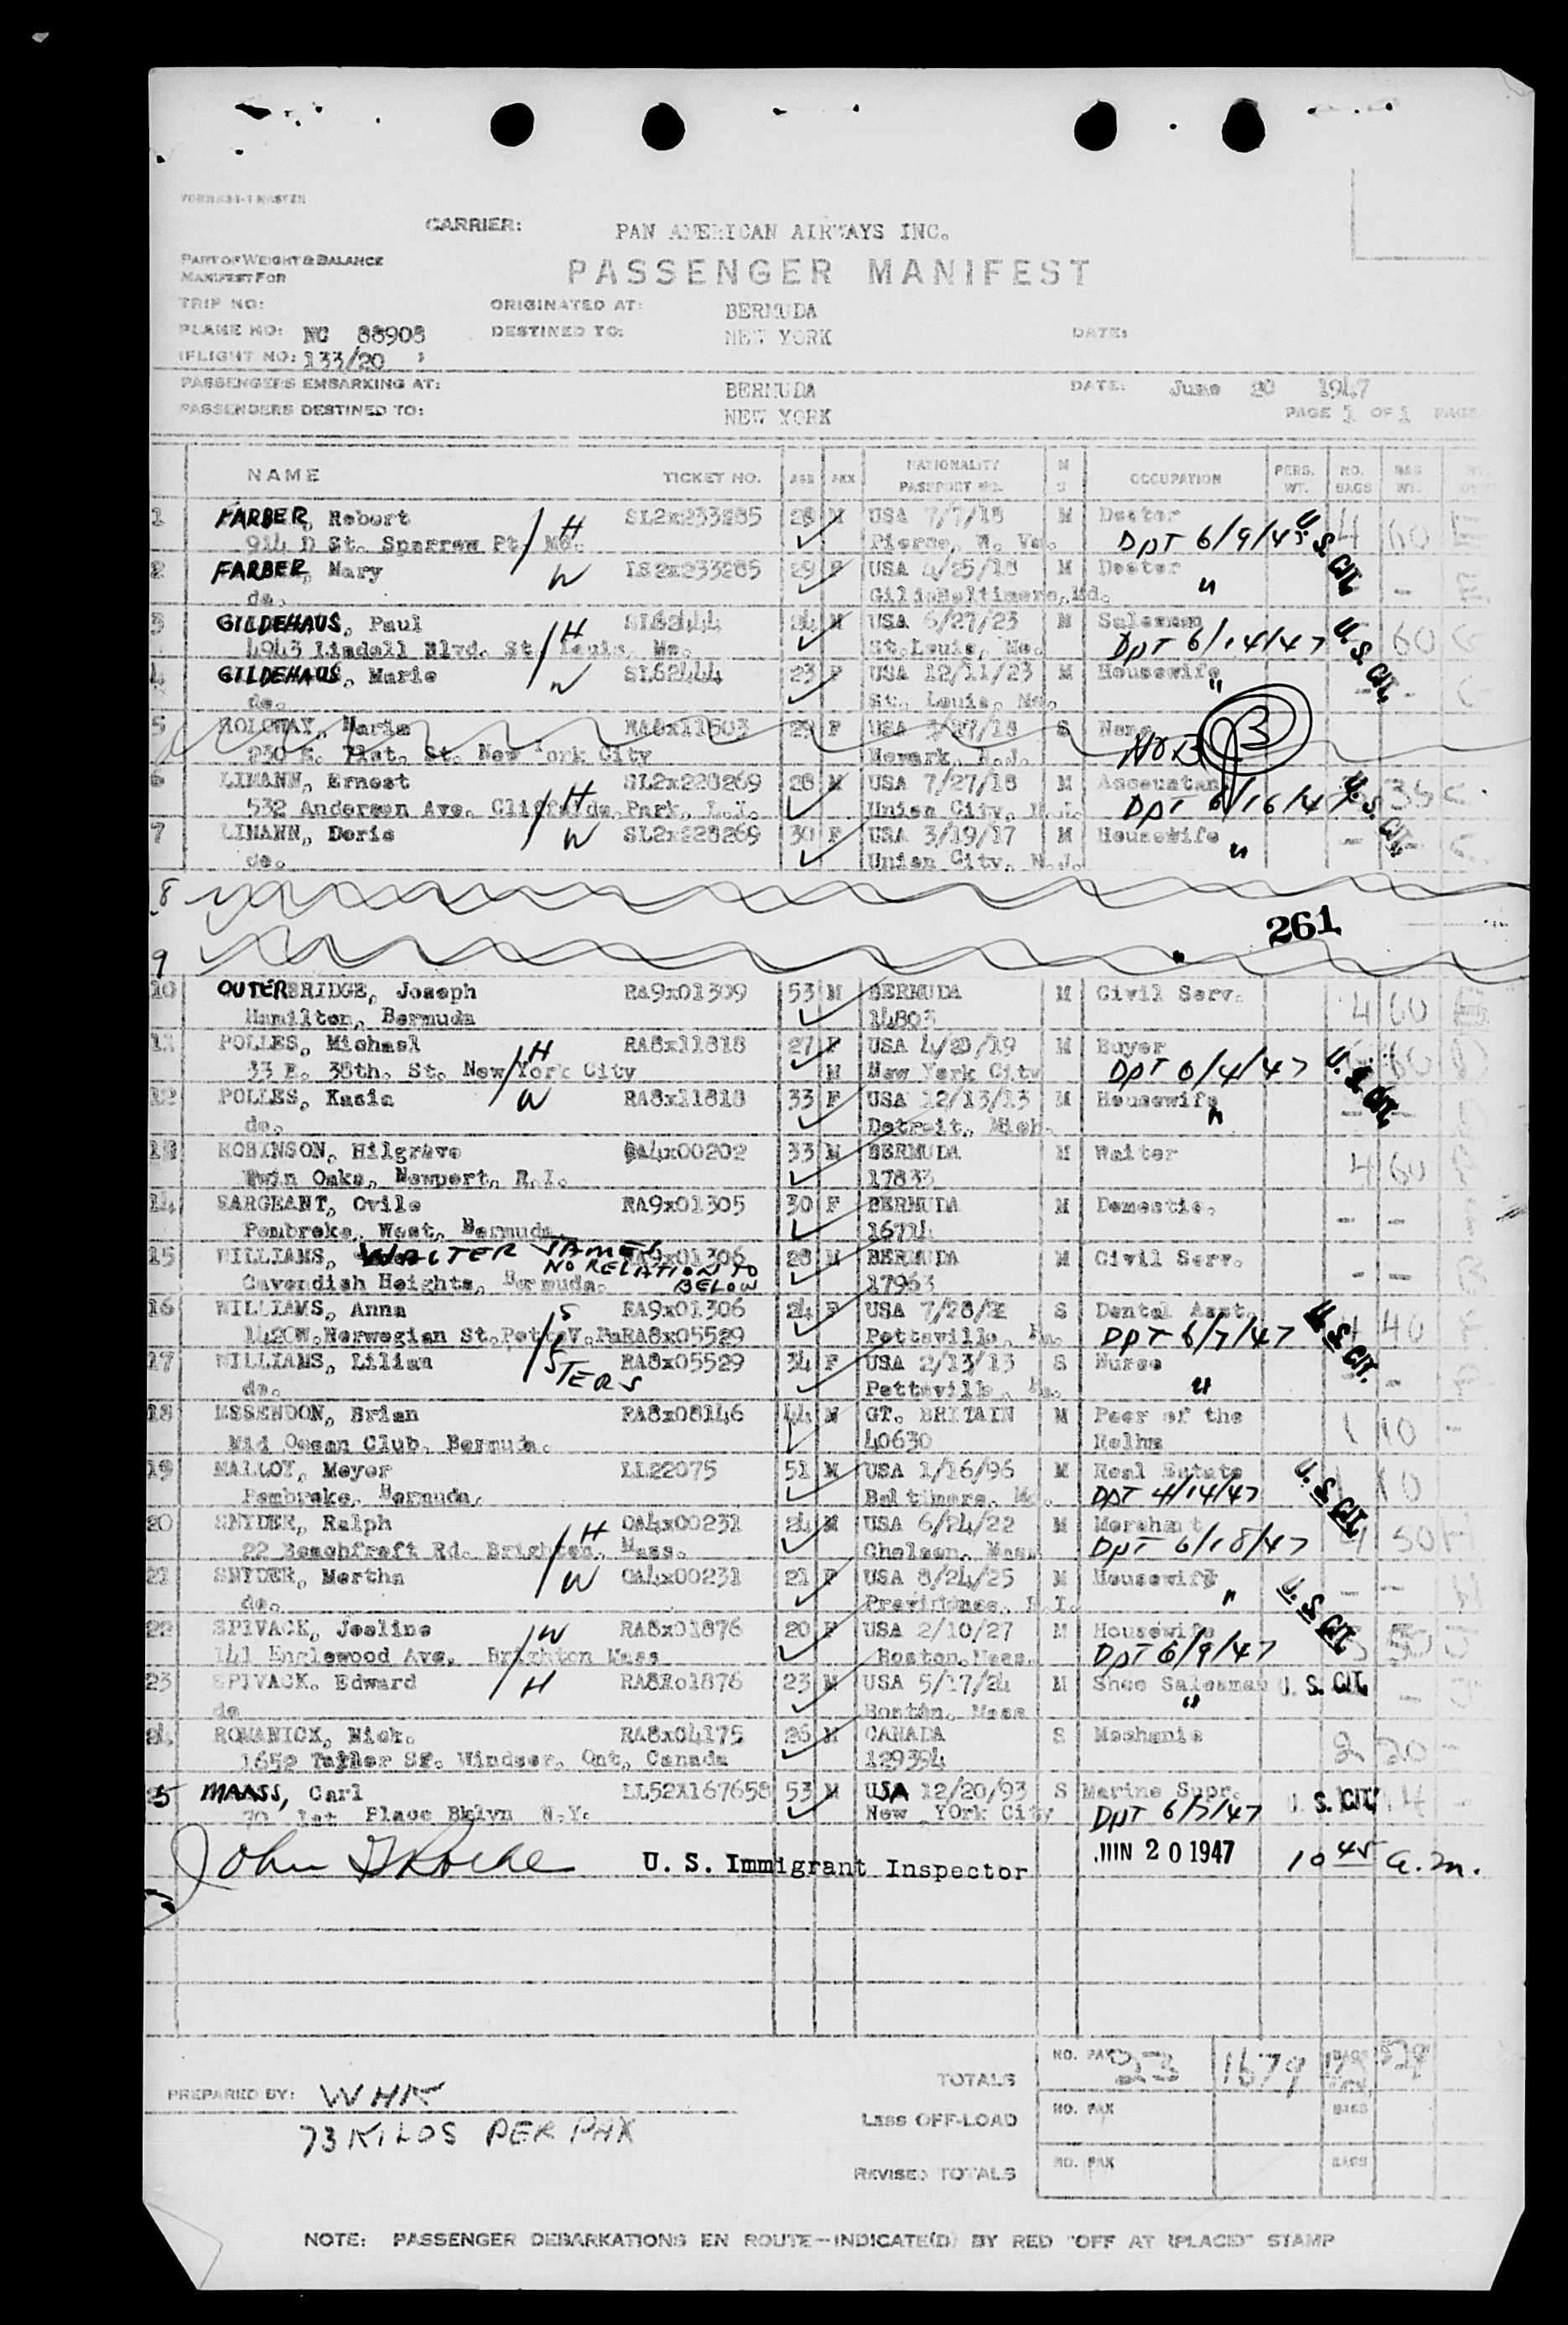 CARRIER: PAN AMERICAN AIRWAYS INC.
PART OF WEIGHT & BALANCE
MANIFEST FOR
PASSENGER MANIFEST
TRIP NO: ORIGINATED AT: BERMUDA
PLANE NO: NC 88908 DESTINED TO: NEW YORK DATE:
FLIGHT NO: 133/20
PASSENGERS EMBARKING AT: BERMUDA DATE: June 20 1947
PASSENGERS DESTINED TO: NEW YORK PAGE 1 OF 1 PAGES
NAME TICKET NO. AGE SEX NATIONALITY PASSPORT NO. M S OCCUPATION PERS. WT. NO. BAGS BAG WT.
1 FARBER, Robert H SL2x233285 28 M USA 7/7/18 M Doctor 4 60
914 D St. Sparrow Pt. Md. Pierce, W. Va. DPT 6/9/47 U. S. CIT.
2 FARBER, Mary W LS2x233285 29 F USA 4/25/18 M Doctor -
do. Baltimore, Md. "
3 GILDEHAUS, Paul H SL62444 24 M USA 6/27/23 M Salesman 60
4943 Lindell Blvd. St. Louis, Mo. St. Louis, Mo. DPT 6/14/47 U. S. CIT.
4 GILDEHAUS, Marie W SL62444 23 F USA 12/11/23 M Housewife - -
do. St. Louis, Mo. "
5 HOLOWAY, Maria RA8x11503 29 F USA 3/27/18 S None
230 E. 71st. St. New York City Newark, N.J. NOB
6 LIMANN, Ernest H SL2x228269 28 M USA 7/27/18 M Accountant 35
532 Anderson Ave. Cliffside Park, L.I. Union City, N.J. DPT 6/16/47 U. S. CIT.
7 LIMANN, Doris W SL2x228269 30 F USA 3/19/17 M Housewife -
do. Union City, N.J. "
8
261
9
10 OUTERBRIDGE, Joseph RA9x01309 53 M BERMUDA M Civil Serv. 4 60
Hamilton, Bermuda 14803
11 POLLES, Michael H RA8x11818 27 F USA 4/20/19 M Buyer 60
33 E. 38th. St. New York City M New York City DPT 6/4/47 U. S. CIT.
12 POLLES, Kasia W RA8x11818 33 F USA 12/13/13 M Housewife - -
do. Detroit, Mich. "
13 ROBINSON, Hilgrave QA4x00202 33 M BERMUDA M Waiter 4 60
Twin Oaks, Newport, R.I. 17833
14 SARGEANT, Ovile RA9x01305 30 F BERMUDA M Domestic. - -
Pembroke, West, Bermuda 16714
15 WILLIAMS, WALTER JAMES RA9x01306 28 M BERMUDA M Civil Serv. - -
NO RELATION TO BELOW
Cavendish Heights, Bermuda. 17963
16 WILLIAMS, Anna RA9x01306 24 F USA 7/28/2 S Dental Asst. 40
1420W.Norwegian St.PottsV.Pa RA8x05529 Pottsville, Pa. DPT 6/7/47 U. S. CIT.
17 WILLIAMS, Lilian SISTERS RA8x05529 34 F USA 2/13/13 S Nurse -
do. Pottsville, Pa. "
18 ESSENDON, Brian RA8x08146 44 M GT. BRITAIN M Peer of the 1 10 -
Mid Ocean Club, Bermuda. 40630 Relhm
19 MALLOY, Meyer LL22075 51 M USA 1/16/96 M Real Estate 10
Pembroke, Bermuda, Baltimore, Md. DPT 4/14/47 U. S. CIT.
20 SNYDER, Ralph H OA4x00231 24 M USA 6/24/22 M Merchant 4 50
22 Beachfraft Rd. Brighton, Mass. Chelsea, Mass DPT 6/18/47
21 SNYDER, Mertha W OA4x00231 21 F USA 8/24/25 M Housewife - -
do. Providence, R.I. " U. S. CIT.
22 SPIVACK, Jesline W RA8x01876 20 F USA 2/10/27 M Housewife 3 50
141 Englewood Ave, Brighton Mass Boston, Mass. DPT 6/9/47
23 SPIVACK. Edward H RA8Xo1876 23 M USA 5/17/24 M Shoe Salesman U. S. CIT. -
do Boston, Mass "
24. ROMANICK, Nick. RA8x04175 26 M CANADA S Mechanic 2 20 -
1652 Tayler St. Windser, Ont, Canada 129394
25 MAASS, Carl LL52X167658 53 M USA 12/20/93 S Marine Supr. 14 -
70 1st Place Bklyn N.Y. New YOrk City DPT 6/7/47 U. S. CIT.
U. S. Immigrant Inspector JUN 20 1947 10 45 a.m.
TOTALS NO. PAX 23 1679 BAGS
PREPARED BY: WHK
LESS OFF-LOAD NO. PAX BAGS
73 KILOS PER PAX
REVISED TOTALS NO. PAX BAGS
NOTE: PASSENGER DEBARKATIONS EN ROUTE—INDICATE(D) BY RED "OFF AT (PLACE)" STAMP